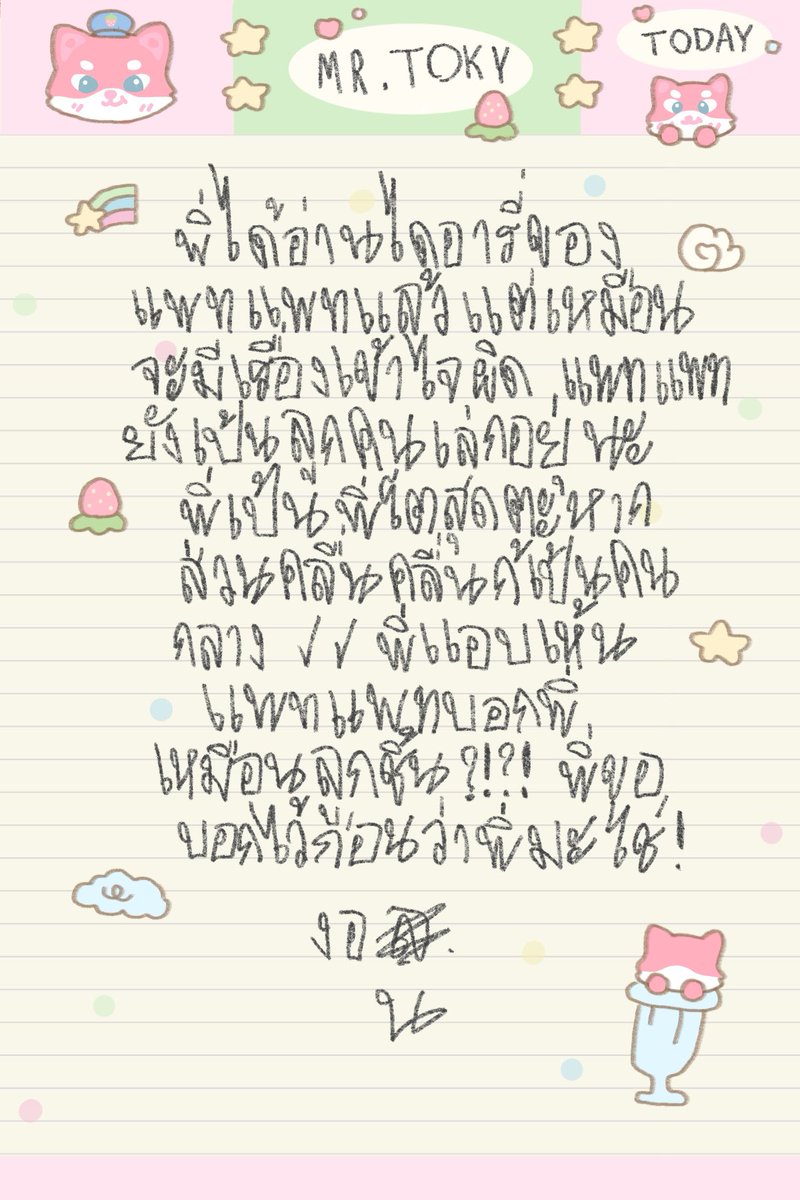 MR. TOKY
TODAY
พี่ได้อ่านไดอารี่ของ
แพทแพทแล้ว แต่เหมือน
จะมีเรื่องเข้าใจผิด แพทแพท
ยังเป้นลูกคนเล่กอยู่ นะ
พี่เป้นพี่โตสุดตะหาก
ส่วนคลื่นคลื่นก้เป้นคน
กลาง √√ พี่แอบเห้น
แพทแพทบอกพี่
เหมือนลูกชิ้น?!?! พี่ขอ
บอกไว้ก่อนว่าพี่มะใช่!
งอ
น